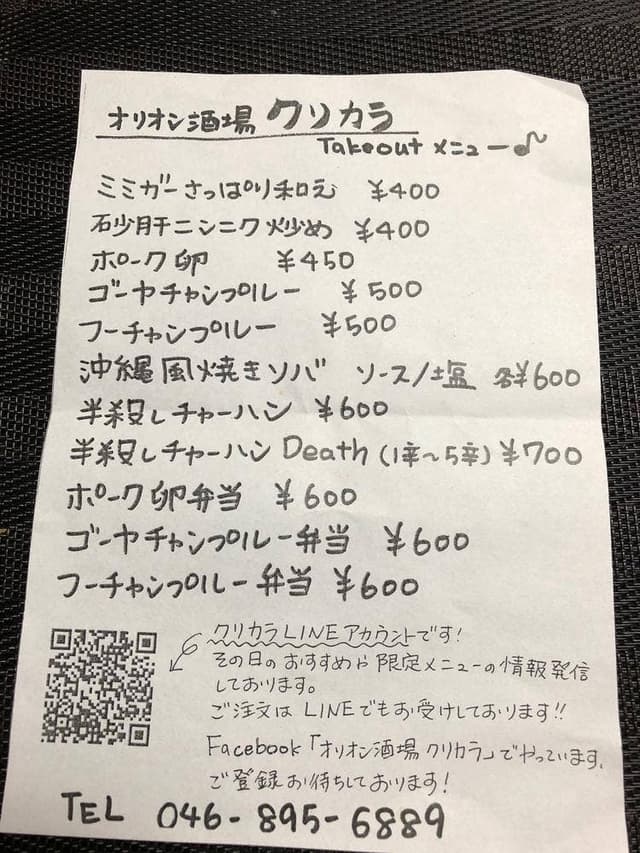 オリオン酒場 クリカラ
Takeout メニュー
ミミガーさっぱり和え ¥400
砂肝ニンニク炒め ¥400
ポーク卵 ¥450
ゴーヤチャンプルー ¥500
フーチャンプルー ¥500
沖縄風焼きソバ ソース/塩 各¥600
半殺しチャーハン ¥600
半殺しチャーハン Death (1辛〜5辛) ¥700
ポーク卵弁当 ¥600
ゴーヤチャンプルー弁当 ¥600
フーチャンプルー弁当 ¥600
クリカラLINEアカウントです!
その日のおすすめや限定メニューの情報発信
しております。
ご注文はLINEでもお受けしております!!
Facebook「オリオン酒場クリカラ」でやっています。
ご登録お待ちしております!
TEL 046-895-6889